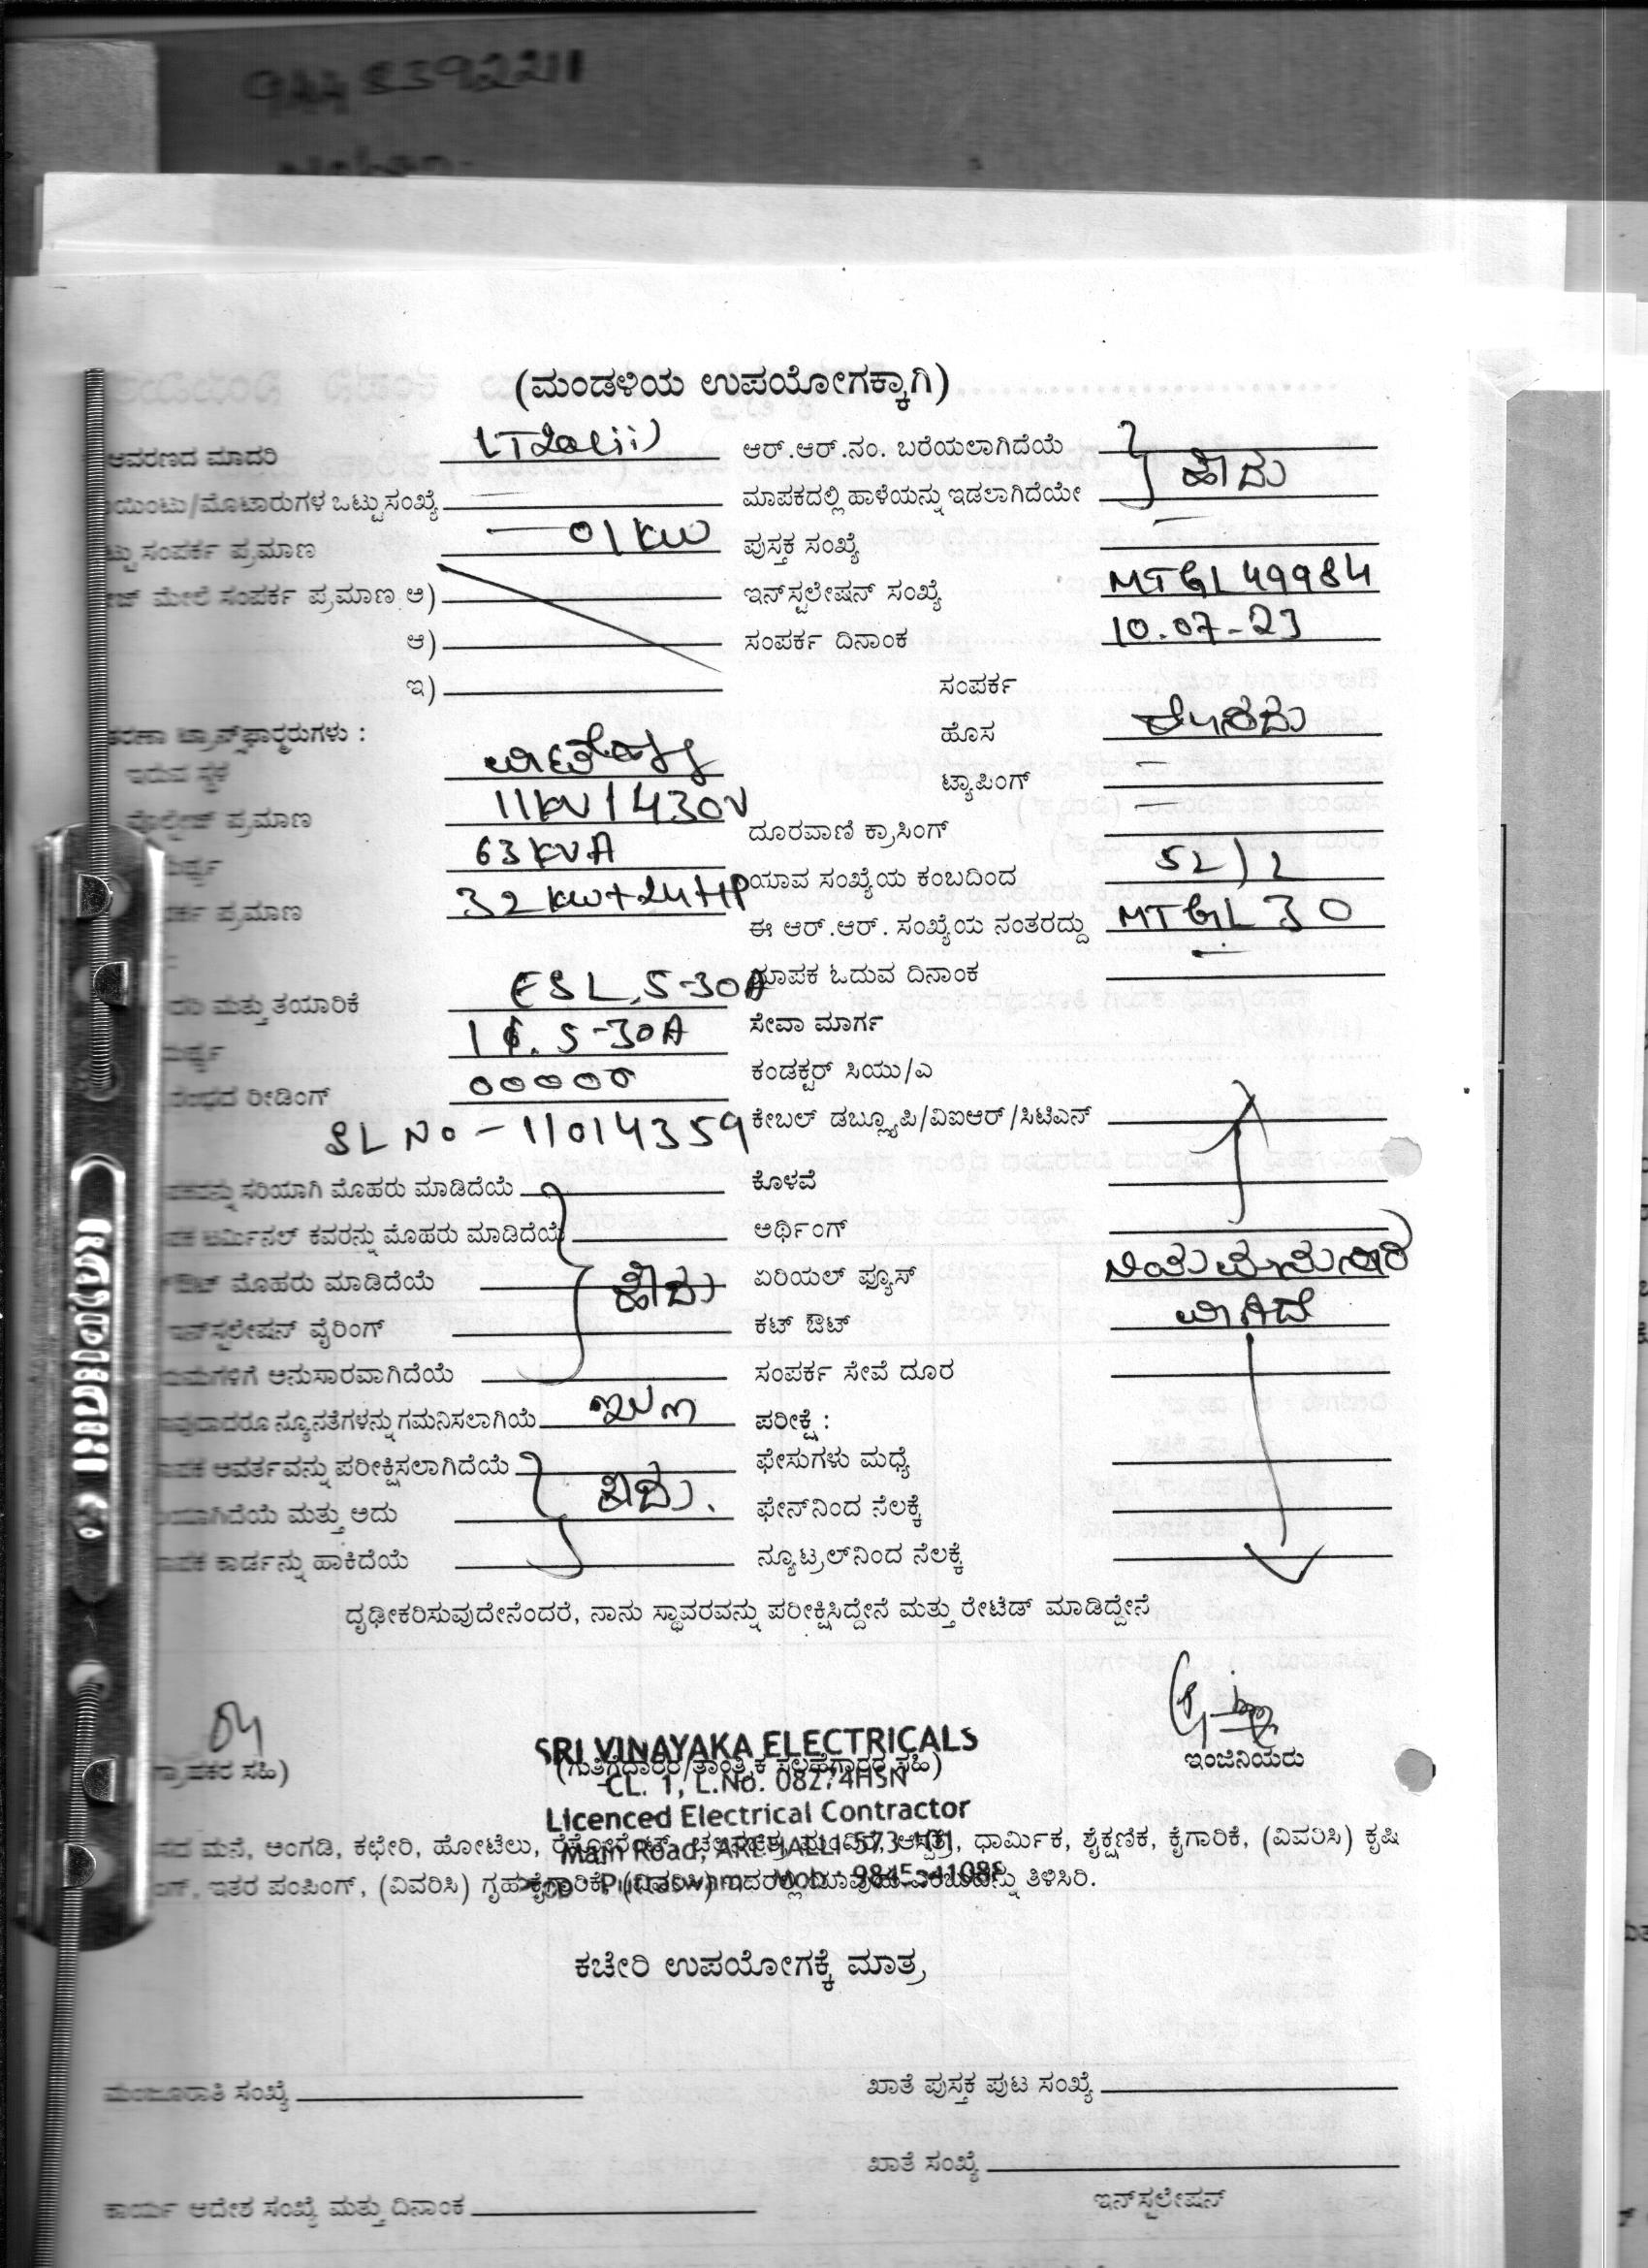 8392211
(ಮಂಡಳಿಯ ಉಪಯೋಗಕ್ಕಾಗಿ)
ಆವರಣದ ಮಾದರಿ ಆರ್.ಆರ್.ನಂ. ಬರೆಯಲಾಗಿದೆಯೆ ಹೌದು
ಯಿಂಟು/ಮೊಟಾರುಗಳ ಒಟ್ಟು ಸಂಖ್ಯೆ ಮಾಪಕದಲ್ಲಿ ಹಾಳೆಯನ್ನು ಇಡಲಾಗಿದೆಯೇ
ಟ್ಟು ಸಂಪರ್ಕ ಪ್ರಮಾಣ 01 KW ಪುಸ್ತಕ ಸಂಖ್ಯೆ
ಮೇಲೆ ಸಂಪರ್ಕ ಪ್ರಮಾಣ ಅ) ಇನ್‌ಸ್ಟಲೇಷನ್ ಸಂಖ್ಯೆ MTGL 49984
ಆ) ಸಂಪರ್ಕ ದಿನಾಂಕ 10.07-23
ಇ) ಸಂಪರ್ಕ
ತರಣಾ ಟ್ರಾನ್ಸ್‌ಫಾರ್ಮರುಗಳು : ಹೊಸ
ಇರುವ ಸ್ಥಳ ಟ್ಯಾಪಿಂಗ್
ವೊಲ್ಟೇಜ್ ಪ್ರಮಾಣ 11KV/430V ದೂರವಾಣಿ ಕ್ರಾಸಿಂಗ್
63 KVA ಯಾವ ಸಂಖ್ಯೆಯ ಕಂಬದಿಂದ 52/2
ಪರ್ಕ ಪ್ರಮಾಣ 32 KW+24HP ಈ ಆರ್.ಆರ್. ಸಂಖ್ಯೆಯ ನಂತರದ್ದು MTGL 30
ಮಾಪಕ ಓದುವ ದಿನಾಂಕ
ದರಿ ಮತ್ತು ತಯಾರಿಕೆ 5-30A ಸೇವಾ ಮಾರ್ಗ
5-30A ಕಂಡಕ್ಟರ್ ಸಿಯು/ಎ
ರೀಡಿಂಗ್ 00000
SL No - 11014359 ಕೇಬಲ್ ಡಬ್ಲ್ಯೂಪಿ/ವಿಐಆರ್/ಸಿಟಿಎನ್
ಸರಿಯಾಗಿ ಮೊಹರು ಮಾಡಿದೆಯೆ ಕೊಳವೆ
ಪಕ ಟರ್ಮಿನಲ್ ಕವರನ್ನು ಮೊಹರು ಮಾಡಿದೆಯೆ ಅರ್ಥಿಂಗ್
ಮೊಹರು ಮಾಡಿದೆಯೆ ಹೌದು ಏರಿಯಲ್ ಫ್ಯೂಸ್
ಇನ್‌ಸ್ಟಲೇಷನ್ ವೈರಿಂಗ್ ಕಟ್ ಔಟ್
ಯಮಗಳಿಗೆ ಅನುಸಾರವಾಗಿದೆಯೆ ಸಂಪರ್ಕ ಸೇವೆ ದೂರ
ವುದಾದರೂ ನ್ಯೂನತೆಗಳನ್ನು ಗಮನಿಸಲಾಗಿಯೆ ಇಲ್ಲ ಪರೀಕ್ಷೆ :
ಪಕ ಆವರ್ತವನ್ನು ಪರೀಕ್ಷಿಸಲಾಗಿದೆಯೆ ಫೇಸುಗಳು ಮಧ್ಯೆ
ಯಾಗಿದೆಯೆ ಮತ್ತು ಅದು ಫೇನ್‌ನಿಂದ ನೆಲಕ್ಕೆ
ಪಕ ಕಾರ್ಡನ್ನು ಹಾಕಿದೆಯೆ ನ್ಯೂಟ್ರಲ್‌ನಿಂದ ನೆಲಕ್ಕೆ
ದೃಢೀಕರಿಸುವುದೇನೆಂದರೆ, ನಾನು ಸ್ಥಾವರವನ್ನು ಪರೀಕ್ಷಿಸಿದ್ದೇನೆ ಮತ್ತು ರೇಟೆಡ್ ಮಾಡಿದ್ದೇನೆ
SRI VINAYAKA ELECTRICALS
ಸಹಿ) (ಗುತ್ತಿಗೆದಾರರ/ತಾಂತ್ರಿಕ ಸಲಹೆಗಾರರ ಸಹಿ) ಇಂಜಿನಿಯರು
CL. 1, L.No. 08274HSN
Licenced Electrical Contractor
ಮನೆ, ಅಂಗಡಿ, ಕಛೇರಿ, ಹೋಟೆಲು, ಧಾರ್ಮಿಕ, ಶೈಕ್ಷಣಿಕ, ಕೈಗಾರಿಕೆ, (ವಿವರಿಸಿ) ಕೃಷಿ
Main Road, 573
ಇತರ ಪಂಪಿಂಗ್, (ವಿವರಿಸಿ) ಗೃಹ ಕೈಗಾರಿಕೆ, ತಿಳಿಸಿರಿ.
ಕಚೇರಿ ಉಪಯೋಗಕ್ಕೆ ಮಾತ್ರ
ಮಂಜೂರಾತಿ ಸಂಖ್ಯೆ ಖಾತೆ ಪುಸ್ತಕ ಪುಟ ಸಂಖ್ಯೆ
ಖಾತೆ ಸಂಖ್ಯೆ
ಕಾರ್ಯ ಆದೇಶ ಸಂಖ್ಯೆ ಮತ್ತು ದಿನಾಂಕ ಇನ್‌ಸ್ಟಲೇಷನ್